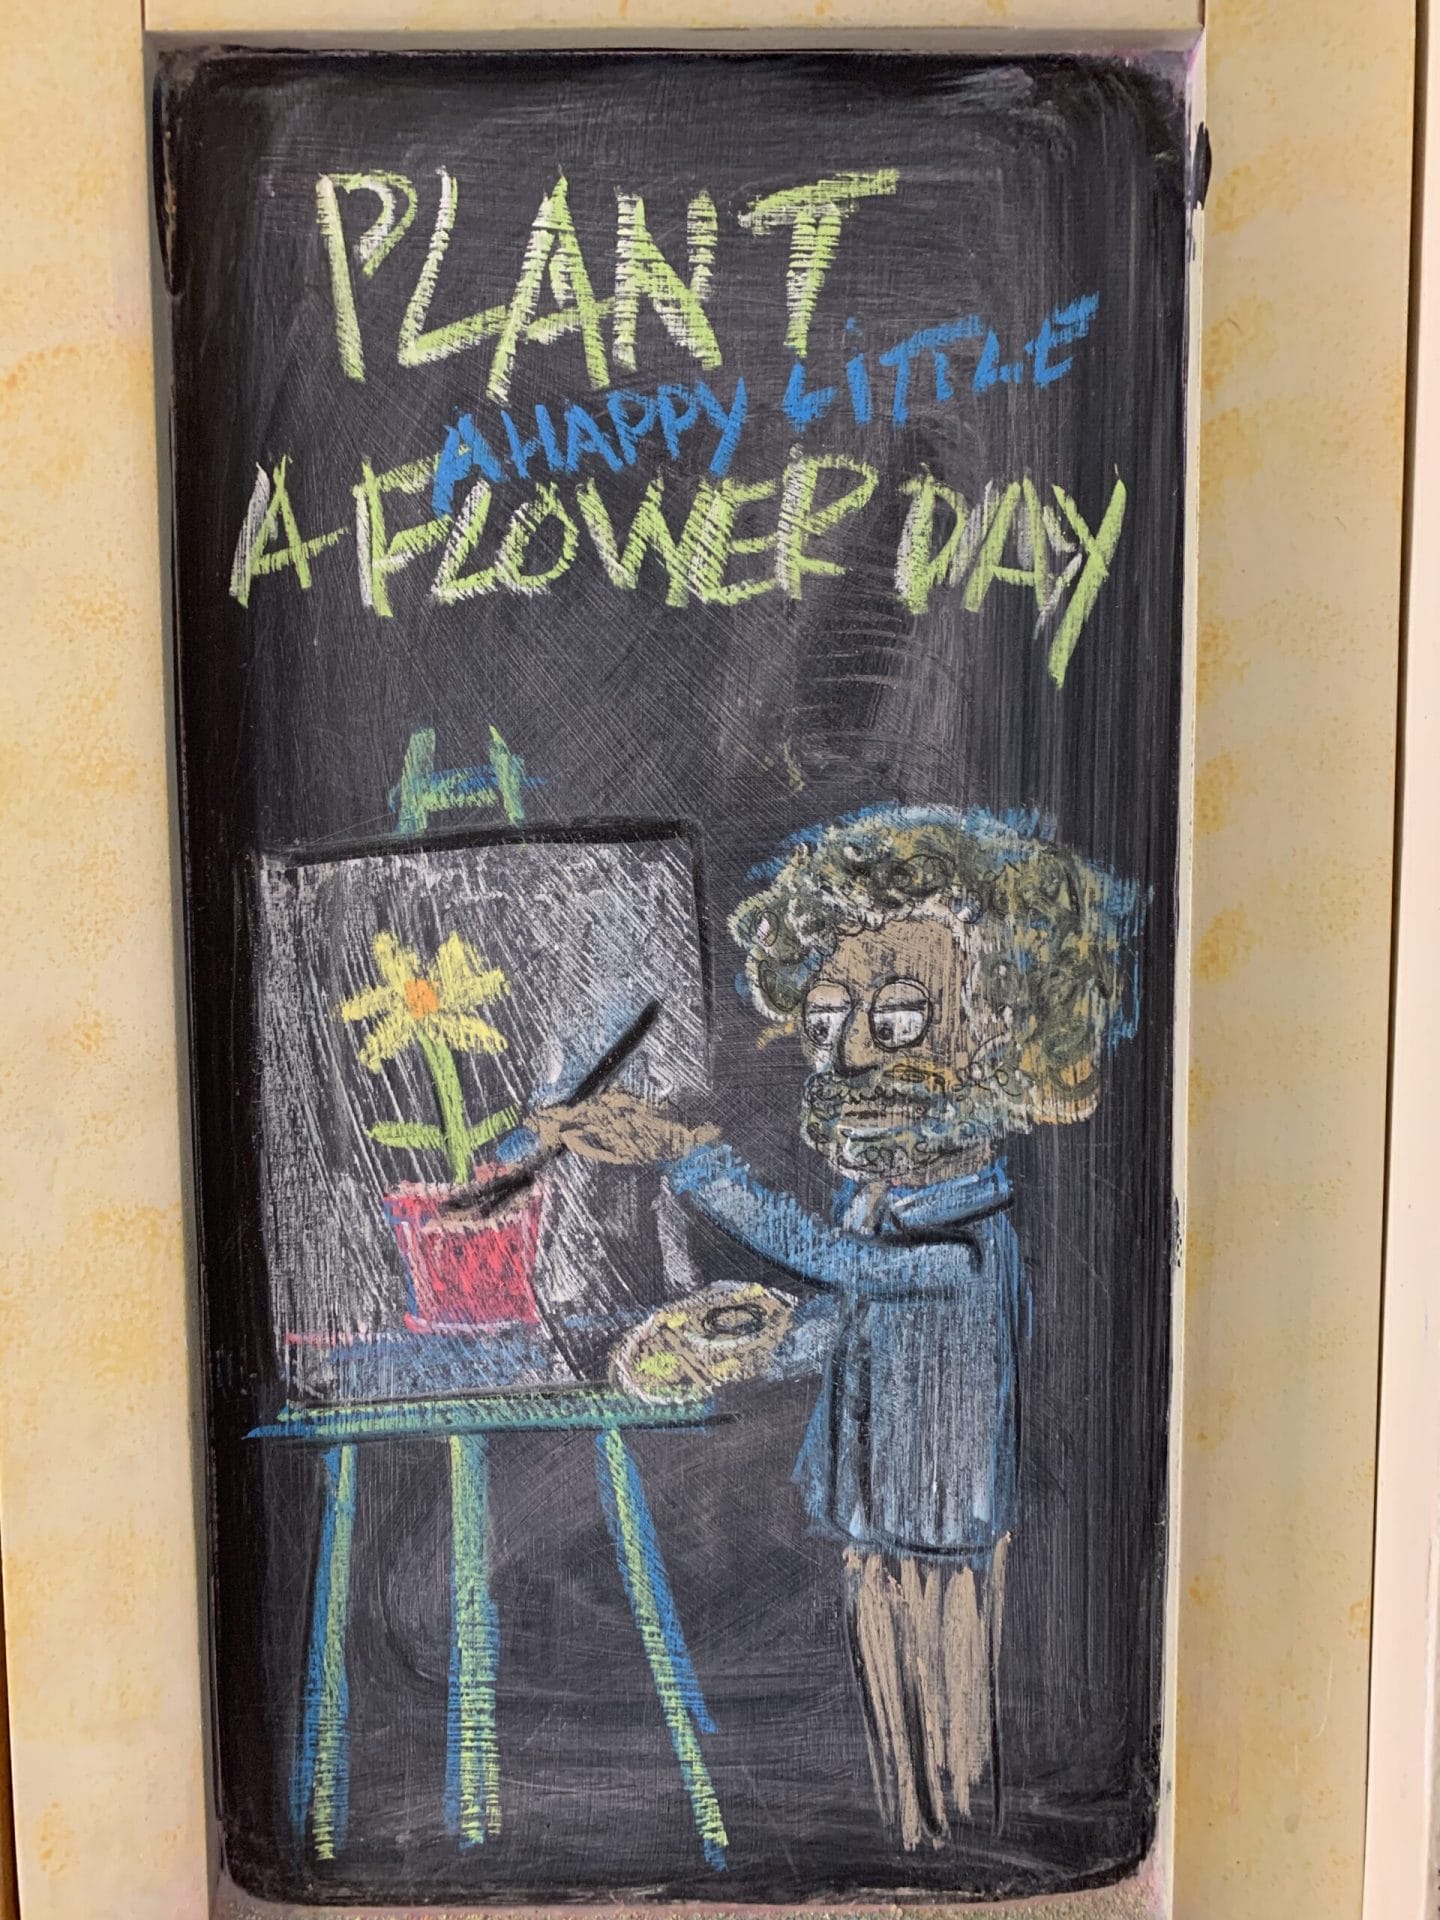 PLANT
A HAPPY LITTLE
A FLOWER DAY